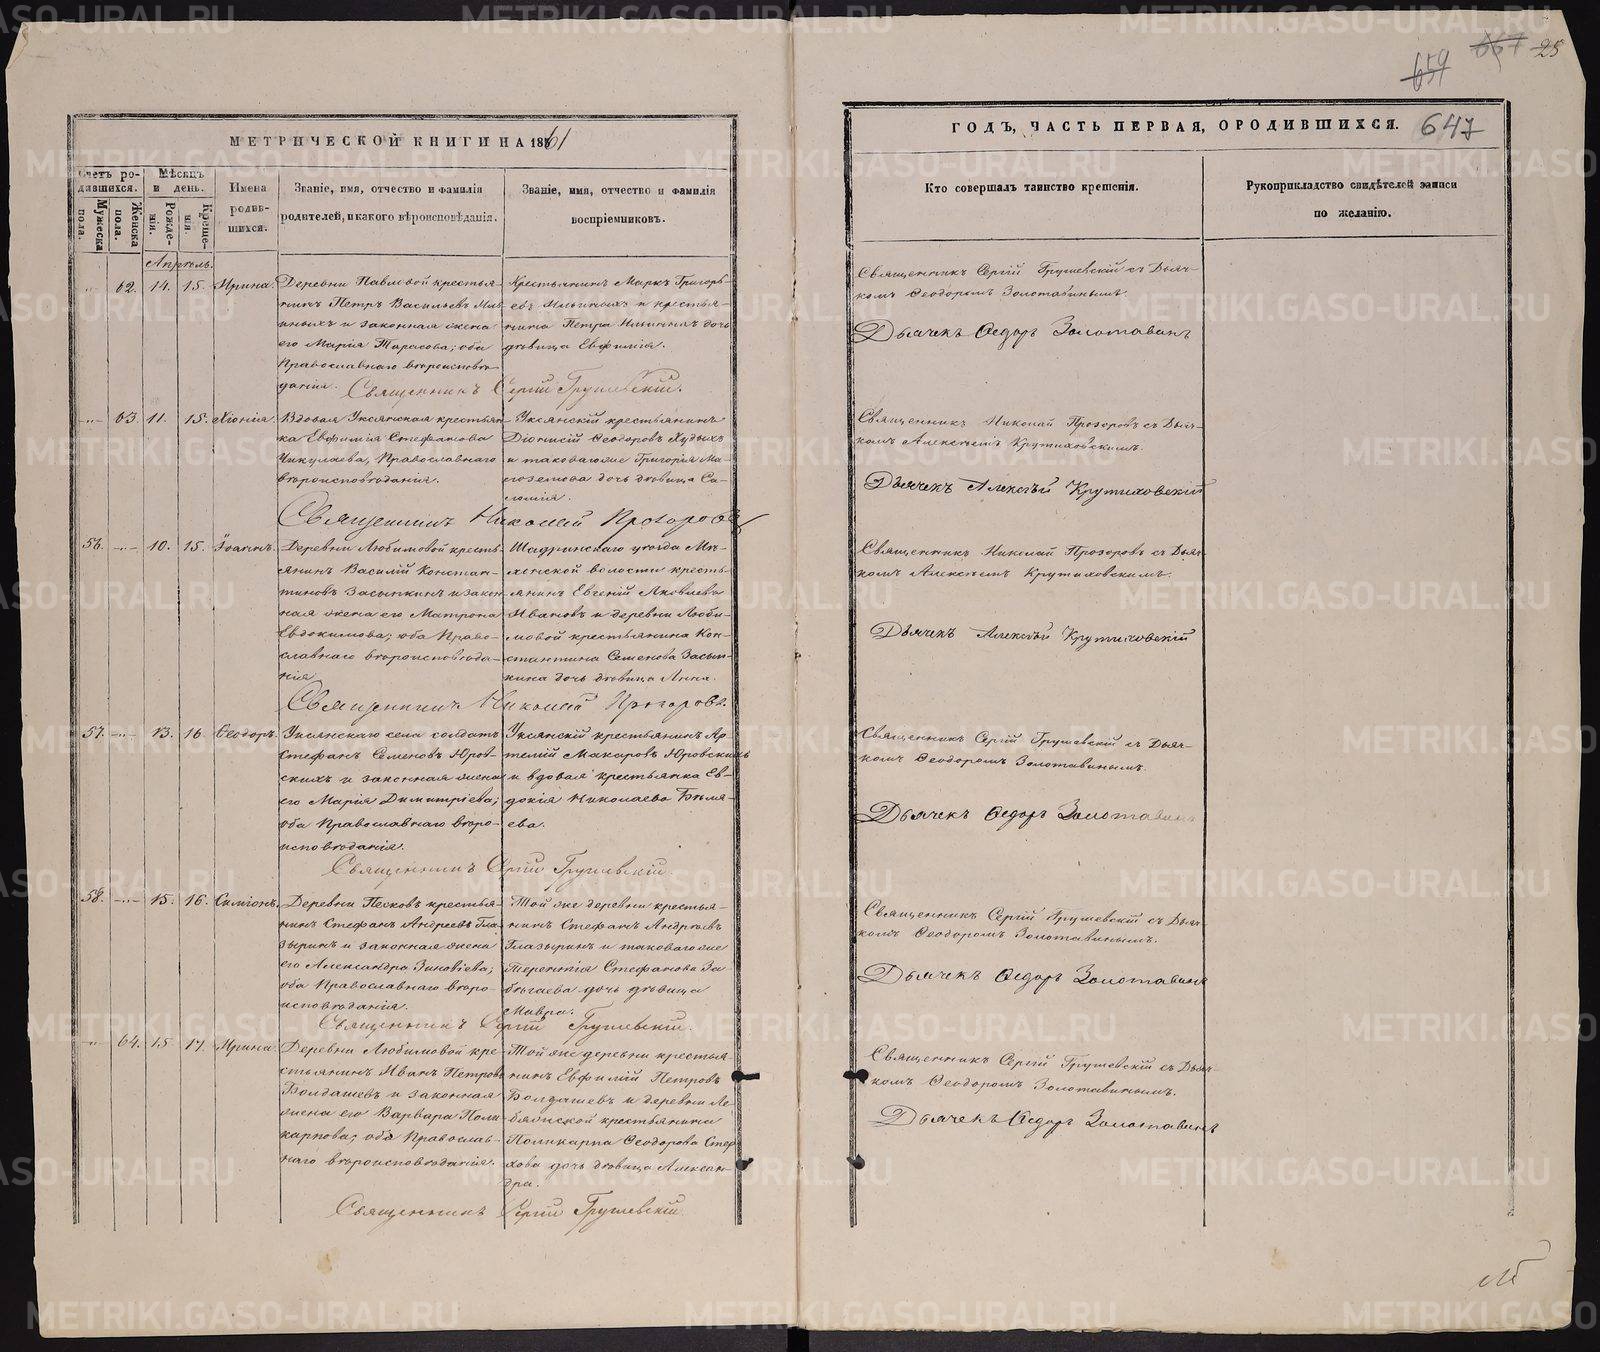 657 25
659
МЕТРИЧЕСКОЙ КНИГИ НА 1861
ГОДЪ, ЧАСТЬ ПЕРВАЯ, О РОДИВШИХСЯ. 647
Счетъ родившихся.
Мужеска пола.
Женска пола.
Мѣсяцъ и день.
Рожденія.
Крещенія.
Имена родившихся.
Званіе, имя, отчество и фамилія родителей, и какого вѣроисповѣданія.
Званіе, имя, отчество и фамилія воспріемниковъ.
Кто совершалъ таинство крещенія.
Рукоприкладство свидѣтелей записи по желанію.
Апрѣль.
62. 14. 15. Ирина.
Деревни Павловой крестья-
нинъ Петръ Васильевъ
и законная жена
его Марія Тарасова; оба
Православнаго вѣроисповѣ-
данія.
Крестьянинъ Маркъ Григорь-
евъ Ильиныхъ и крестья-
нина Петра Ильиныхъ дочь
дѣвица Евфимія.
Священникъ Сергій Грушевскій.
Священникъ Сергій Грушевскій съ Дьяч-
комъ Ѳеодоромъ Золотавинымъ.
Дьячекъ Ѳедоръ Золотавинъ
63. 11. 15. Хіонія.
Вдовая Уксянская крестьян-
ка Евфимія Стефанова
Чикулаева, Православнаго
вѣроисповѣданія.
Уксянскій крестьянинъ
Діонисій Ѳеодоровъ Худыхъ
и таковагоже Григорія Ма-
лоземова дочь дѣвица Са-
ломія.
Священникъ Николай Прозоровъ
Священникъ Николай Прозоровъ съ Дьяч-
комъ Алексѣемъ Крутиховскимъ.
Дьячекъ Алексѣй Крутиховскій
56. 10. 15. Іоаннъ.
Деревни Любимовой кресть-
янинъ Василій Констан-
тиновъ Засыпкинъ и закон-
ная жена его Матрона
Евдокимова; оба Право-
славнаго вѣроисповѣда-
нія.
Шадринскаго уѣзда Мѣ-
хонской волости кресть-
янинъ Евгеній Яковлевъ
Ивановъ и деревни Люби-
мовой крестьянина Кон-
стантина Семенова Засып-
кина дочь дѣвица Анна.
Священникъ Николай Прозоровъ.
Священникъ Николай Прозоровъ съ Дьяч-
комъ Алексѣемъ Крутиховскимъ.
Дьячекъ Алексѣй Крутиховскій
57. 13. 16. Ѳеодоръ.
Уксянскаго села солдатъ
Стефанъ Семеновъ Юров-
скихъ и законная жена
его Марія Димитріева;
оба Православнаго вѣро-
исповѣданія.
Уксянскій крестьянинъ Ар-
темій Макаровъ Юровскихъ
и вдовая крестьянка Ев-
докія Николаева Бѣля-
ева.
Священникъ Сергій Грушевскій
Священникъ Сергій Грушевскій съ Дьяч-
комъ Ѳеодоромъ Золотавинымъ.
Дьячекъ Ѳедоръ Золотавинъ
58. 15. 16. Симеонъ.
Деревни Песковъ крестья-
нинъ Стефанъ Андреевъ Гла-
зыринъ и законная жена
его Александра Зиновіева;
оба Православнаго вѣро-
исповѣданія.
Той же деревни крестья-
нинъ Стефанъ Андреевъ
Глазыринъ и таковагоже
Терентія Стефанова За-
бѣгаева дочь дѣвица
Мавра.
Священникъ Сергій Грушевскій.
Священникъ Сергій Грушевскій съ Дьяч-
комъ Ѳеодоромъ Золотавинымъ.
Дьячекъ Ѳедоръ Золотавинъ
64. 15. 17. Ирина.
Деревни Любимовой кре-
стьянинъ Иванъ Петровъ
Болдашевъ и законная
жена его Варвара Поли-
карпова; оба Православ-
наго вѣроисповѣданія.
Той же деревни крестья-
нинъ Евфимій Петровъ
Болдашевъ и деревни Ле-
бяжской крестьянина
Поликарпа Ѳеодорова
дочь дѣвица Алексан-
дра.
Священникъ Сергій Грушевскій
Священникъ Сергій Грушевскій съ Дьяч-
комъ Ѳеодоромъ Золотавинымъ.
Дьячекъ Ѳедоръ Золотавинъ
METRIKI.GASO-URAL.RU